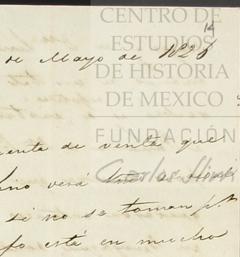 CENTRO DE
ESTUDIOS
DE HISTORIA
DE MEXICO
FUNDACIÓN
Carlos Slim
14
de Mayo de 182
cuenta de venta que
verá
si no se toman
está en mucho